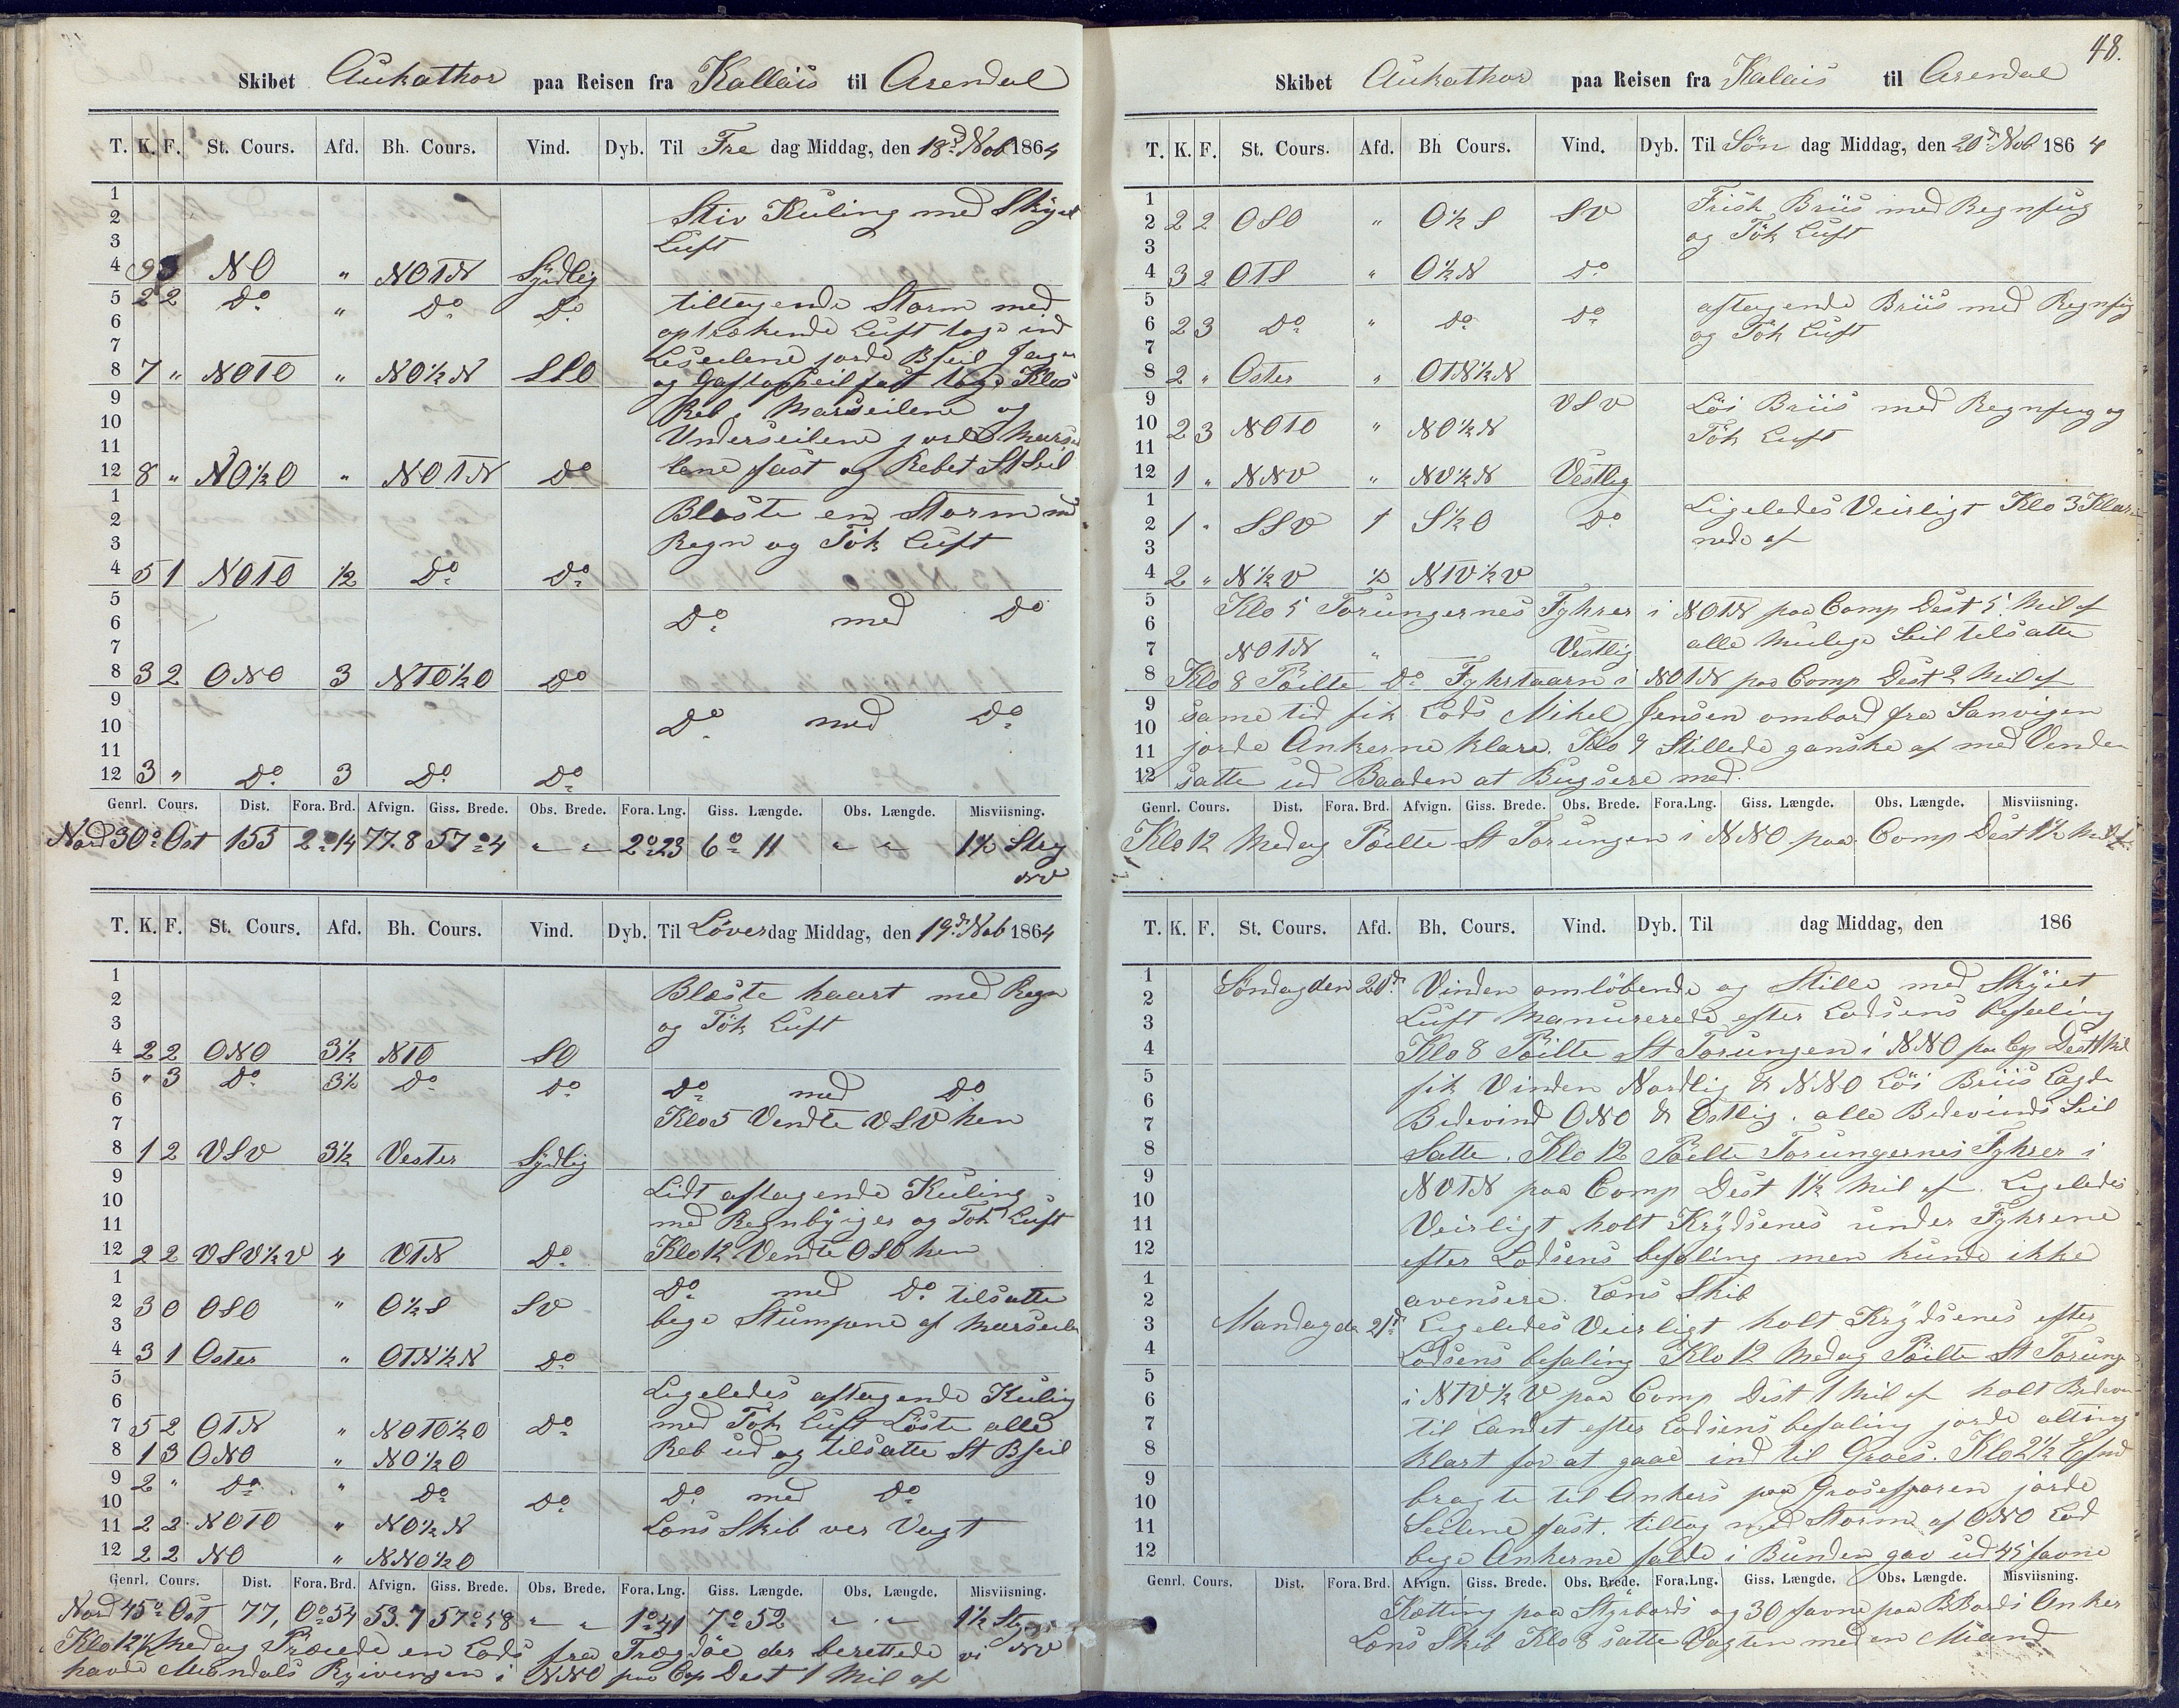 Skibet Aukathor paa Reisen fra Kallais til Arendal
T. K. F. St. Cours. Afd. Bh. Cours. Vind. Dyb. Til Fre dag Middag, den 18d Nob 1864
1
2 Stiv Kuling med Skyet
3 Luft
4 9 NO " NOTN Sydlig
5 2 2 Do " Do Do tiltagende Storm med
6 optrækende Luft toge ind
7 Leseilene jorde BSeil Jager
8 7 " NOTO " NO½N SSO og Gaftopseil fast toge Klos
9 Reb i Marseilene og
10 Underseilene jorde Marsei
11
12 8 " NO½O " NOTN Do lene fast og Rebet St Seil
1 Blæste en Storm md
2 Regn og Tök Luft
3
4 5 1 NOTO ½ Do Do
5
6 Do med Do
7
8 3 2 ONO 3 NTO½O Do
9
10 Do med Do
11
12 3 " Do 3 Do Do
Genrl. Cours. Dist. Fora. Brd. Afvign. Giss. Brede. Obs. Brede. Fora. Lng. Giss. Længde. Obs. Længde. Misviisning.
Nord 30o Ost 155 2o14 77.8 57o4 " " 2o23 6o 11 " " 1½ Streg
NV
T. K. F. St. Cours. Afd. Bh. Cours. Vind. Dyb. Til Löverdag Middag, den 19d Nob 1864
1 Blæste haart med Regn
2
3 og Tök Luft
4 2 2 ONO 3½ NTO SO
5 " 3 Do 3½ Do Do Do med Do
6
7 Klo 5 Vendte VSV hen
8 1 2 VSV 3½ Vester Sydlig
9 Lidt aftagende Kuling
10
11 med Regnbyiger og Tök Luft
12 2 2 VSV½V 4 VTN Do Klo 12 Vendte OSO hen
1 Do med Do tilsatte
2 3 0 OSO " O½S SV bege Stumpene af Marseilen
3
4 3 1 Oster " OTN½N Do
5
6 Ligeledes aftagende Kuling
7 5 2 OTN " NOTO½O Do med Tök Luft Löste alle
8 1 3 ONO " NO½O Reb ud og tilsatte St BSeil
9 2 " Do " Do Do Do med Do
10
11 2 2 NOTO " NO½N Lens Skib ver Vagt
12 2 2 NO " NNO½O
Genrl. Cours. Dist. Fora. Brd. Afvign. Giss. Brede. Obs. Brede. Fora. Lng. Giss. Længde. Obs. Længde. Misviisning.
Nord 45o Ost 77, 0o54 53.7 57o58 " " 1o41 7o 52 " " 1½ Streg
NV
Klo 12½ Medag Præiede en Lods fra Trægdöe der berettede vi
havde Mandals Ryivengen i NNO paa Cop Dest 1 Mil af
48.
Skibet Aukathor paa Reisen fra Kalais til Arendal
T. K. F. St. Cours. Afd. Bh Cours. Vind. Dyb. Til Sön dag Middag, den 20d Nob 1864
1 Frish Briis med Regnfug
2 2 2 OSO " O½S SV og Tök Luft
3
4 3 2 OTS " O½N Do
5 aftagende Briis med Regnfug
6 2 3 Do " Do Do og Tök Luft
7
8 2 " Oster " OTN½N
9 VSV Löi Briis med Regnfug og
10 2 3 NOTO " NO½N Tök Luft
11
12 1 " NNV " NV½N Vestlig
1 Ligeledes Veirligt Klo 3 Klar
2 1 " SSV 1 S½O Do nede af
3
4 2 " N½V ½ NTV½V
5 Klo 5 Torungernes Fyhrer i NOTN paa Comp Dest 5 Mil af
6 alle Mulige Seil tilsatte
7 NOTN " Vestlig
8 Klo 8 Pöilte Do Fyhrtaarn i NOTN paa Comp Dest 2 Mil af
9 same tid fik Lods Mikel Jensen ombord fra Sanvigen
10
11 jorde Ankerne klare. Klo 9 Stillede ganske af med Venden
12 satte ud Baaden at Bugsere med.
Genrl. Cours. Dist. Fora. Brd. Afvign. Giss. Brede. Obs. Brede. Fora.Lng. Giss. Længde. Obs. Længde. Misviisning.
Klo 12 Medag Pöilte St Torungen i NNO paa Comp Dest 1½ Mil af
T. K. F. St. Cours. Afd. Bh. Cours. Vind. Dyb. Til dag Middag, den 186
1 Söndag den 20d Vinden omlöbende og Stille med Skyiet
2
3 Luft Manurerede efter Lodsens befaling
4 Klo 8 Pöilte St Torungen i NNO paa Cop Dest 1 Mil
5 fik Vinden Nordlig & NNO Löi Briis Lagde
6
7 Bidevind ONO & Ostlig. alle Bedevinds Seil
8 Satte. Klo 12 Pöilte Torungernes Fyhrer i
9 NOTN paa Comp Dest 1½ Mil af. Ligeledes
10
11 Veirligt holt Krydsenes under Fyhrene
12 efter Lodsens befaling men kunde ikke
1
2 avensere. Lens Skib
3 Mandag de 21d Ligeledes Veirligt holt Krydsenes efter
4 Lodsens befaling Klo 12 Medag Pöilte St Torung
5
6 i NTV½V paa Comp Dest 1 Mil af holt Bedevin
7 til Landet efter Lodsens befaling jorde alting
8 Klart for at gaae ind til Groes. Klo 2½ Efmd
9 bragte til Ankers paa Grosefjoren jorde
10
11 Seilene fast. tiltog med Storm af ONO Lod
12 bege Ankerne falde i Bunden gav ud 45 favne
Genrl. Cours. Dist. Fora. Brd. Afvign. Giss. Brede. Obs. Brede. Fora.Lng. Giss. Længde. Obs. Længde. Misviisning.
Kætting paa Styrbords og 30 favne paa BBords Anker
Lens Skib Klo 8 satte Vagten med en Mand